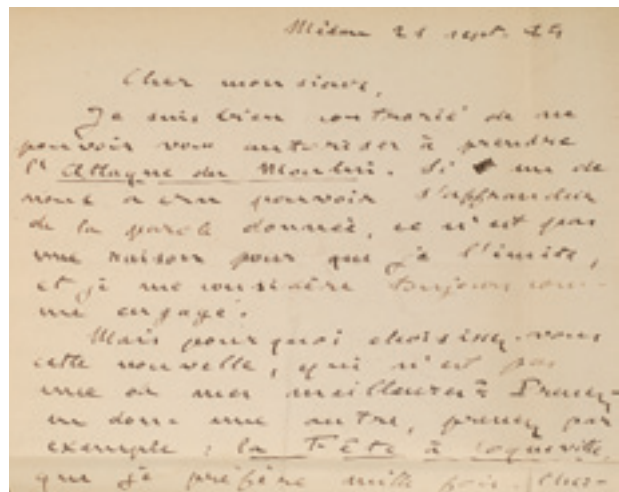 Médan 21 sept. 84
Cher monsieur,
Je suis bien contrarié de ne
pouvoir vous autoriser à prendre
l'Attaque du Moulin. Si un de
nous a cru pouvoir s'affranchir
de la parole donnée, ce n'est pas
une raison pour que je l'imite,
et je me considère toujours com-
me engagé.
Mais pourquoi choisissez-vous
cette nouvelle, qui n'est pas
une de mes meilleures? Prenez-
en donc une autre, prenez par
exemple : la Fête à Coqueville,
que je préfère mille fois. Cher-